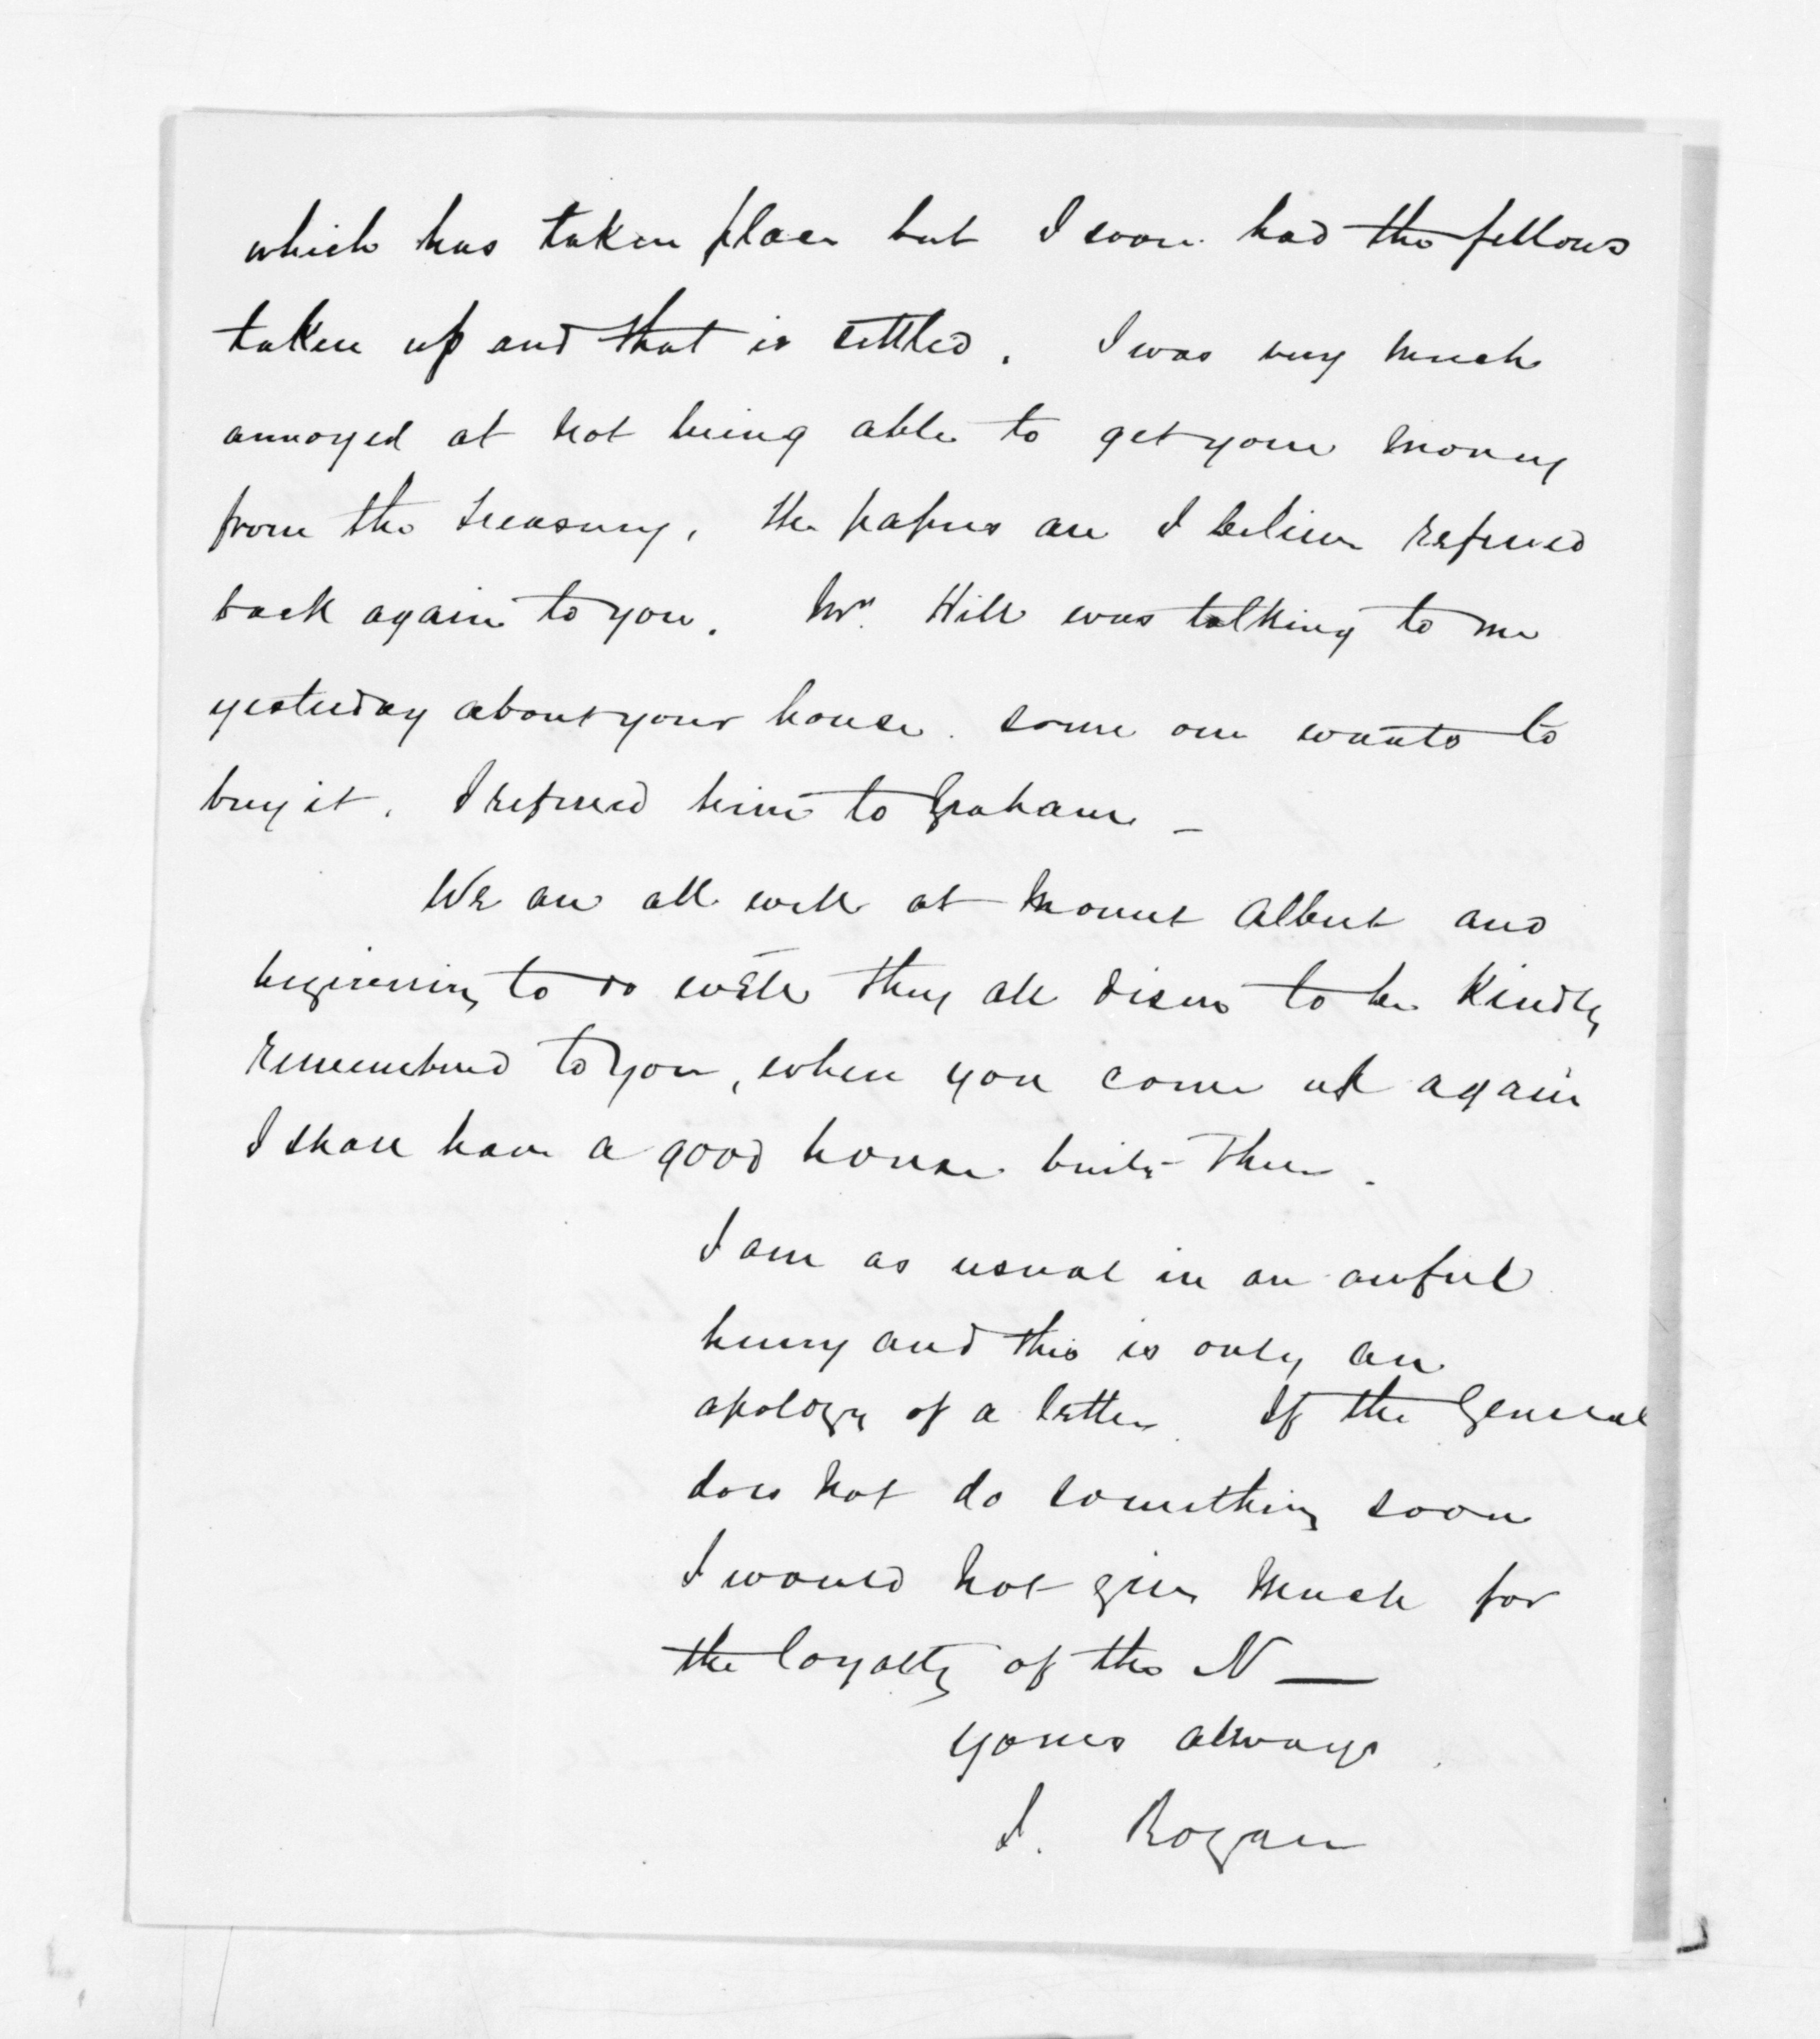 which has taken place but I soon had the fellows
taken up and that is settled. I was very much
annoyed at not being able to get your money
from the treasury, the papers are I believe referred
back again to you. Mr. Hill was talking to me
yesterday about your house. some one wants to
buy it. I referred him to Graham _
We are all well at Mount Albert and
beginning to do well they all desire to be kindly
remembered to you, when you come up again
I shall have a good house built there.
I am as usual in an awful
hurry and this is only an
apology of a letter. If the General
does not do something soon
I would not give much for
the loyalty of the N —
yours always
J. Rogan